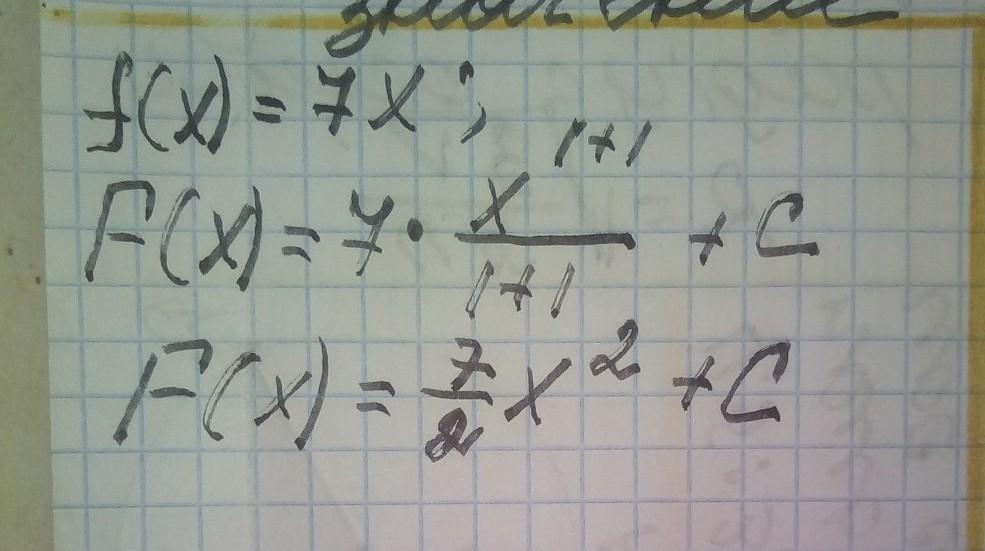 f(x) = 7x;
F(x) = 7 · x^{1+1}/(1+1) + C
F(x) = 7/2 x² + C